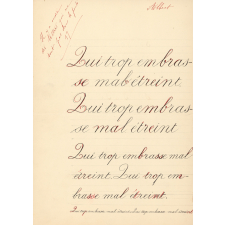 Albert
Qui trop embras-
se mal étreint.
Qui trop embras-
se mal étreint
Qui trop embrasse mal
étreint. Qui trop em-
brasse mal étreint.
Qui trop embrasse mal étreint Qui trop embrasse mal étreint